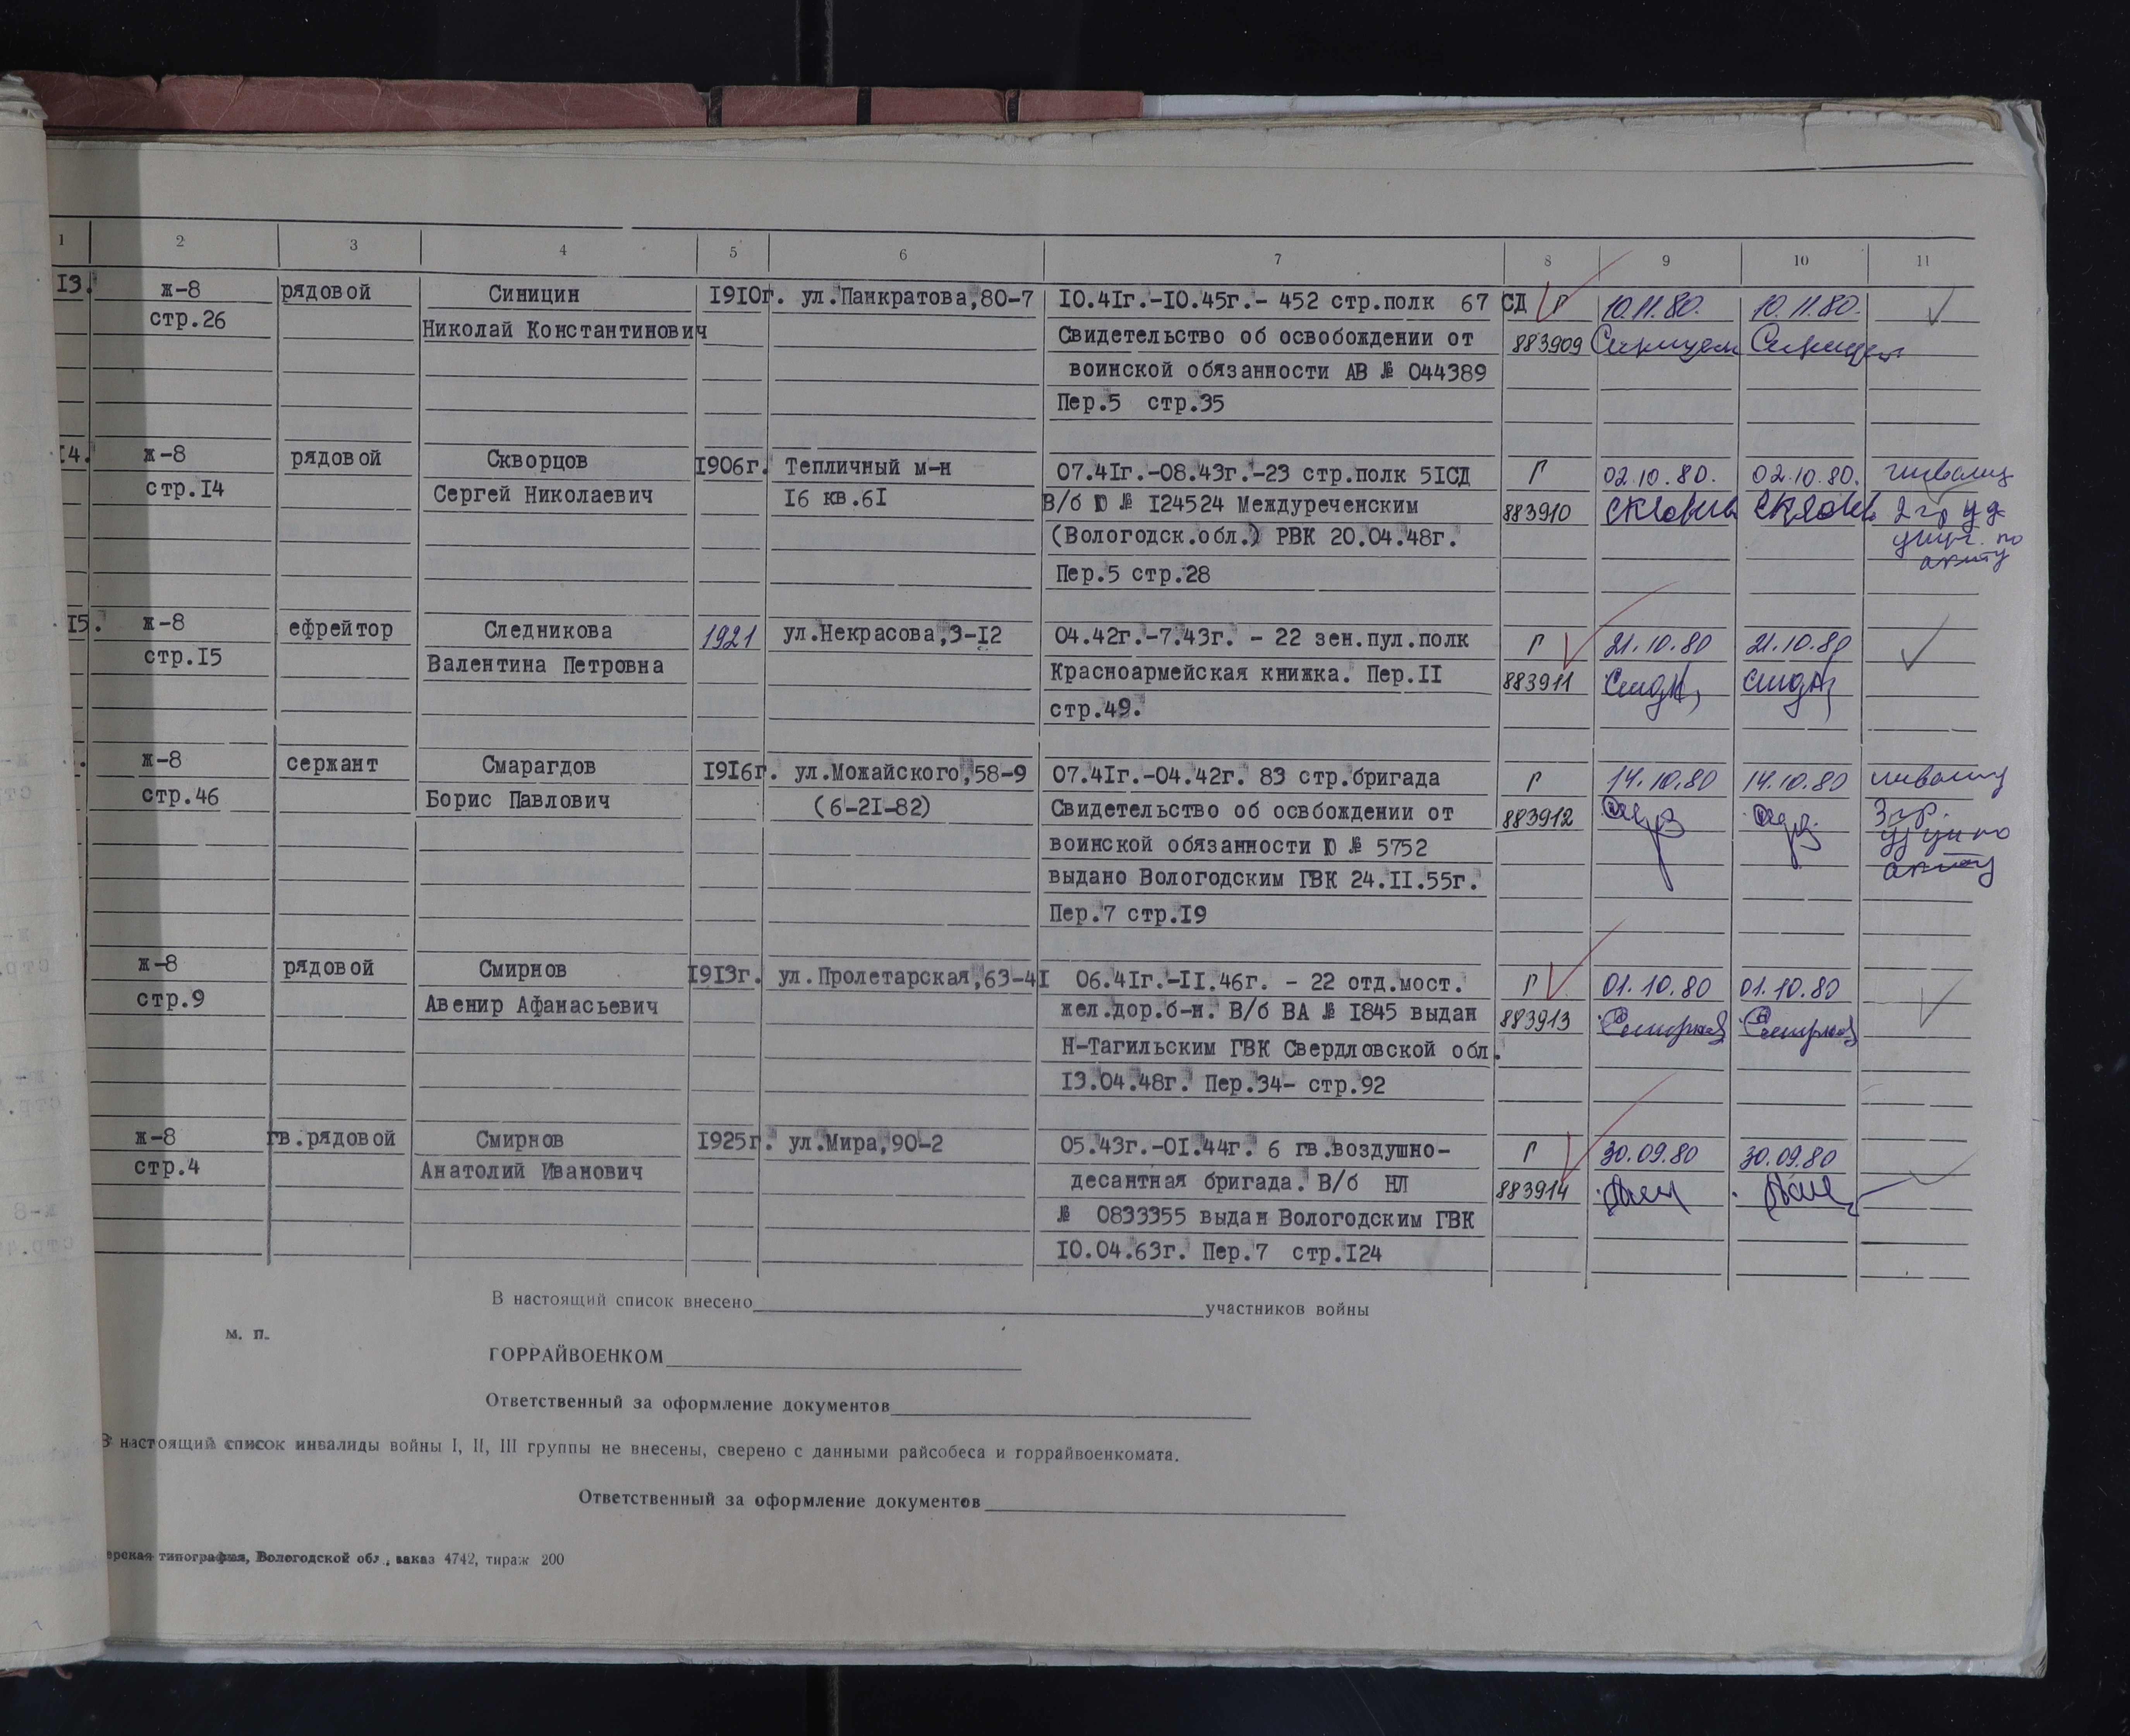 1 2 3 4 5 6 7 8 9 10 11
13. ж-8 рядовой Синицин 1910г. ул.Панкратова,80-7 10.41г.-10.45г.- 452 стр.полк 67 СД Г 10.11.80. 10.11.80.
стр.26 Николай Константинович Свидетельство об освобождении от 883909
воинской обязанности АВ № 044389
Пер.5 стр.35
14. ж-8 рядовой Скворцов 1906г. Тепличный м-н 07.41г.-08.43г.-23 стр.полк 51СД Г 02.10.80. 02.10.80. инвалид
стр.14 Сергей Николаевич 16 кв.61 В/б Ю № 124524 Междуреченским 883910 2 гр уд
(Вологодск.обл.) РВК 20.04.48г. по
Пер.5 стр.28 акту
15. ж-8 ефрейтор Следникова 1921 ул.Некрасова,3-12 04.42г.-7.43г. - 22 зен.пул.полк Г 21.10.80 21.10.80
стр.15 Валентина Петровна Красноармейская книжка. Пер.11 883911
стр.49.
ж-8 сержант Смарагдов 1916г. ул.Можайского,58-9 07.41г.-04.42г. 83 стр.бригада Г 14.10.80 14.10.80 инвалид
стр.46 Борис Павлович (6-21-82) Свидетельство об освобождении от 883912 3 гр.
воинской обязанности Ю № 5752 по
выдано Вологодским ГВК 24.11.55г. акту
Пер.7 стр.19
ж-8 рядовой Смирнов 1913г. ул.Пролетарская,63-41 06.41г.-11.46г. - 22 отд.мост. Г 01.10.80 01.10.80
стр.9 Авенир Афанасьевич жел.дор.б-н. В/б ВА № 1845 выдан 883913
Н-Тагильским ГВК Свердловской обл.
13.04.48г. Пер.34- стр.92
ж-8 гв.рядовой Смирнов 1925г. ул.Мира,90-2 05.43г.-01.44г. 6 гв.воздушно- Г 30.09.80 30.09.80
стр.4 Анатолий Иванович десантная бригада. В/б НЛ 883914
№ 0833355 выдан Вологодским ГВК
10.04.63г. Пер.7 стр.124
В настоящий список внесено участников войны
м. п.
ГОРРАЙВОЕНКОМ
Ответственный за оформление документов
В настоящий список инвалиды войны I, II, III группы не внесены, сверено с данными райсобеса и горрайвоенкомата.
Ответственный за оформление документов
типография, Вологодской обл., заказ 4742, тираж 200